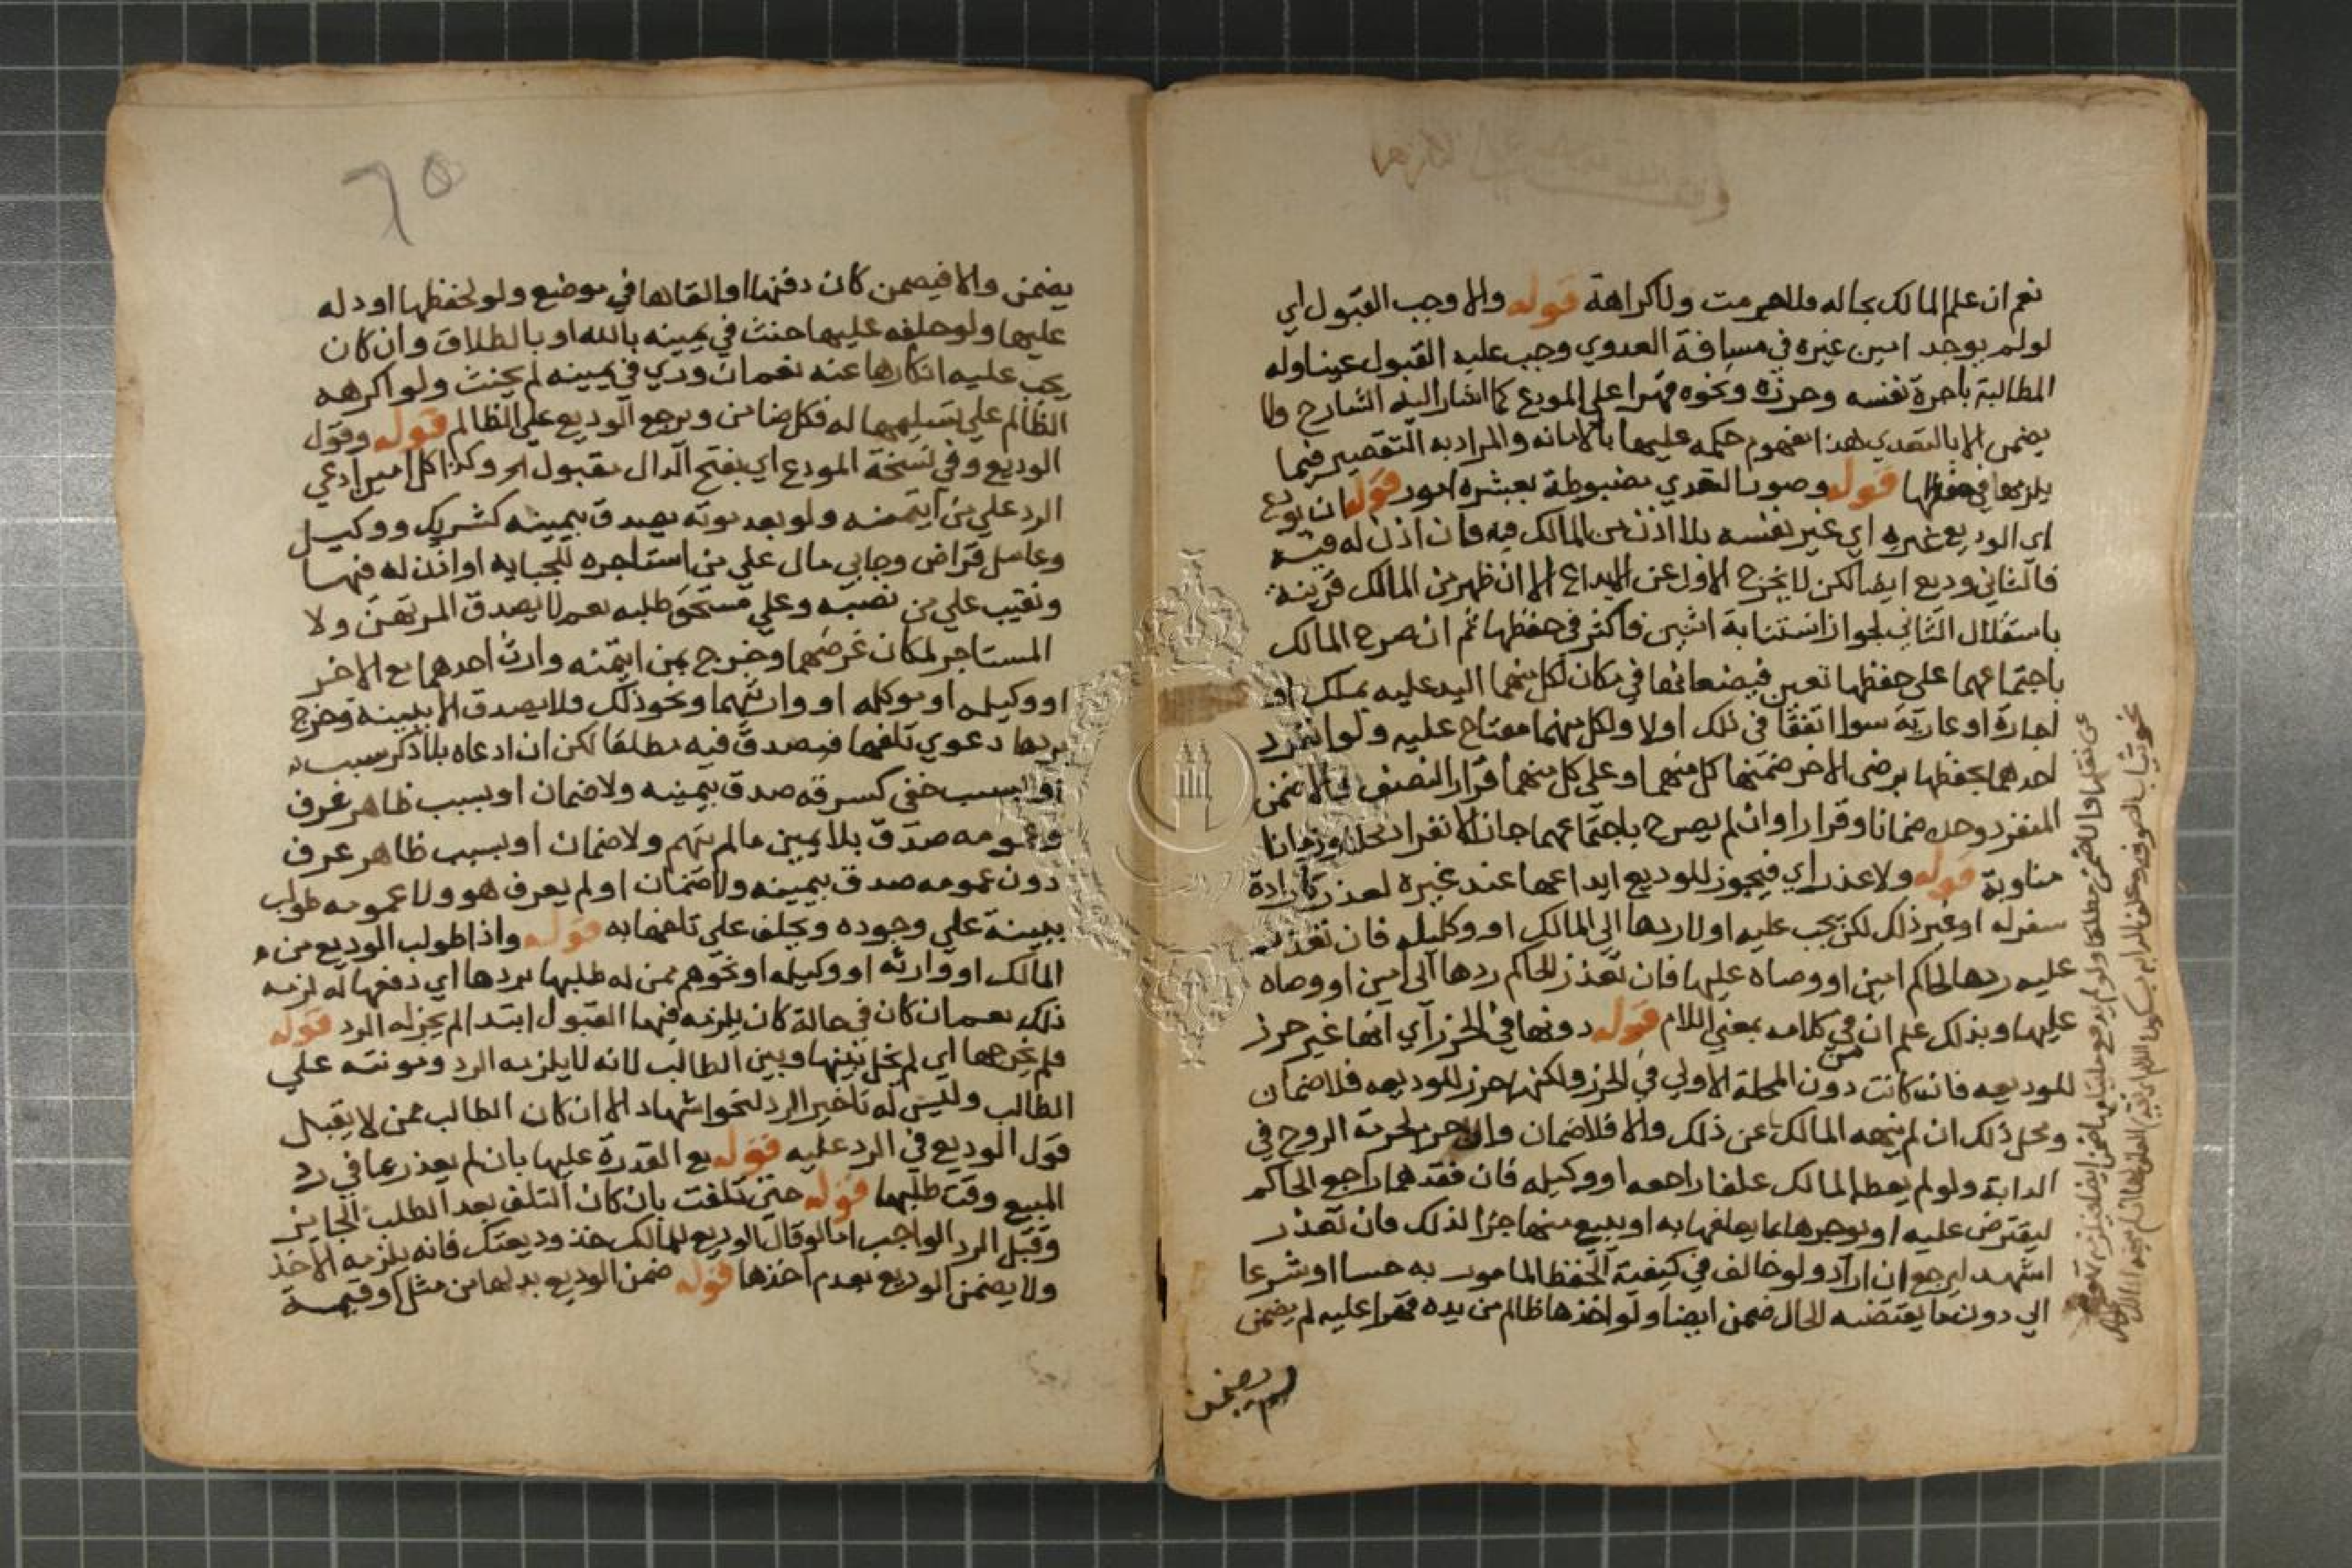 نعم ان علم المالك بحاله فلا حرمت ولا كراهة قوله والا وجب القبول اي
لو لم يوجد امين غيره في مسافة العدوي وجب عليه القبول عينا وله
المطالبة باجرة نفسه وحرزه ونحوه قهرا علي المودع كما اشار اليه الشارح ولا
يضمن الا بالتعدي هذا مفهوم حكمه عليها بالامانه والمراد به التقصير فيما
يلزمه في حفظها قوله وصور التعدي مضبوطة بعشره امور قوله ان يودع
اي الوديع غيره اي غير نفسه بلا اذن من المالك فيه فان اذن له فيه
فالثاني وديع ايضا لكن لا يخرج الاول عن الايداع الا ان ظهر من المالك قرينة
باستقلال الثاني لجواز استنابة اثنين فاكثر في حفظها ثم ان صرح المالك
باجتماعهما علي حفظها تعين فيضعانها في مكان لكل منهما اليد عليه بملك او
اجارة او عارية سوا اتفقا في ذلك اولا ولكل منهما مفتاح عليه ولو انفرد
احدهما بحفظها برضي الاخر ضمنها كل منهما او علي كل منهما قرار النصف والا ضمن
المنفرد وحده ضمانا وقرارا وان لم يصرح باجتماعهما جاز الانفراد محلا وزمانا
مناوبة قوله ولا عذر اي فيجوز للوديع ايداعها عند غيره لعذر كارادة
سفر له او غير ذلك لكن يجب عليه اولا ردها الي المالك او وكليله فان تعذر
عليه ردها لحاكم امين او وصاه عليها فان تعذر للحاكم ردها الي امين او وصاه
عليها وبذلك علم ان في كلامه بمعني اللام قوله دونها في الحرز اي انها غير حرز
للوديعه فان كانت من دون المحلة الاولي في الحرز ولكنها حرز للوديعه فلا ضمان
ومحل ذلك ان لم ينهه المالك عن ذلك والا فلا ضمان لحرمة الروح في
الدابة ولو لم يعط المالك علفا راجعه او وكيله فان فقدهما راجع الحاكم
ليقترض عليه او يوجرها بما يعلفها به او يبيع منها جزا لذلك فان تعذر
اشهد ليرجع ان اراد ولو خالف في كيفية الحفظ المامور به حسا او شرعا
الي دون ما يقتضيه الحال ضمن ايضا ولو اخذها ظالم من يده قهرا عليه لم يضمن
لم يضمن
٦٥
يضمن والا فيضمن كان دفنها او القاها في موضع ولو لحفظها او دله
عليها ولو حلفه عليها حنث في يمينه بالله او بالطلاق وان كان
يجب عليه انكارها عنه نعم ان وري في يمينه لم يحنث ولو اكرهه
الظالم علي تسليمها له فكل ضامن ويرجع الوديع علي الظالم قوله وقول
الوديع وفي نسخة المودع اي بفتح الدال مقبول الخ وكذا كل امين ادعي
الرد علي من ايتمنه ولو بعد موته يصدق بيمينه كشريك ووكيل
وعامل قراض وجابي مال علي من استاجره للجبايه او اذن له فيها
ونقيب علي من نصبه وعلي مستحق طلبه نعم لا يصدق المرتهن ولا
المستاجر لمكان غرضهما وخرج بمن ايتمنه وارث احدهما مع الاخر
او وكيله او موكله او وارثهما ونحو ذلك فلا يصدق الا ببينة وخرج
بردها دعوي تلفها فيصدق فيه مطلقا لكن ان ادعاه بلا ذكر سبب
او بسبب خفي كسرقه صدق بيمينه ولا ضمان او بسبب ظاهر عرف
وعمومه صدق بلا يمين مالم يتهم ولا ضمان او بسبب ظاهر عرف
دون عمومه صدق بيمينه ولا ضمان او لم يعرف هو ولا عمومه طولب
ببينة علي وجوده ويحلف علي تلفها به قوله واذا طولب الوديع من
المالك او وارثه او وكيله او نحوهم ممن له طلبها بردها اي دفعها له لزمه
ذلك نعم ان كان في حالة كان يلزمه فيها القبول ابتدا لم يجز له الرد قوله
فلم يخرجها اي لم يخل بينها وبين الطالب لانه لا يلزمه الرد ومونته علي
الطالب وليس له تاخير الرد لنحو اشهاد الا ان كان الطالب ممن لا يقبل
قول الوديع في الرد عليه قوله مع القدرة عليها بان لم يعذر بما في رد
المبيع وقت طلبها قوله حتي تلفت بان كان التلف بعد الطلب الجايز
وقبل الرد الواجب اما لو قال الوديع للمالك خذ وديعتك فانه يلزمه الاخذ
ولا يضمن الوديع بعدم اخذها قوله ضمن الوديع بدلها من مثل او قيمة